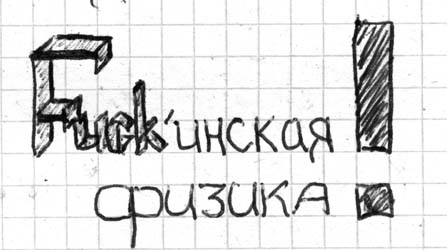 Fuck'инская!
физика